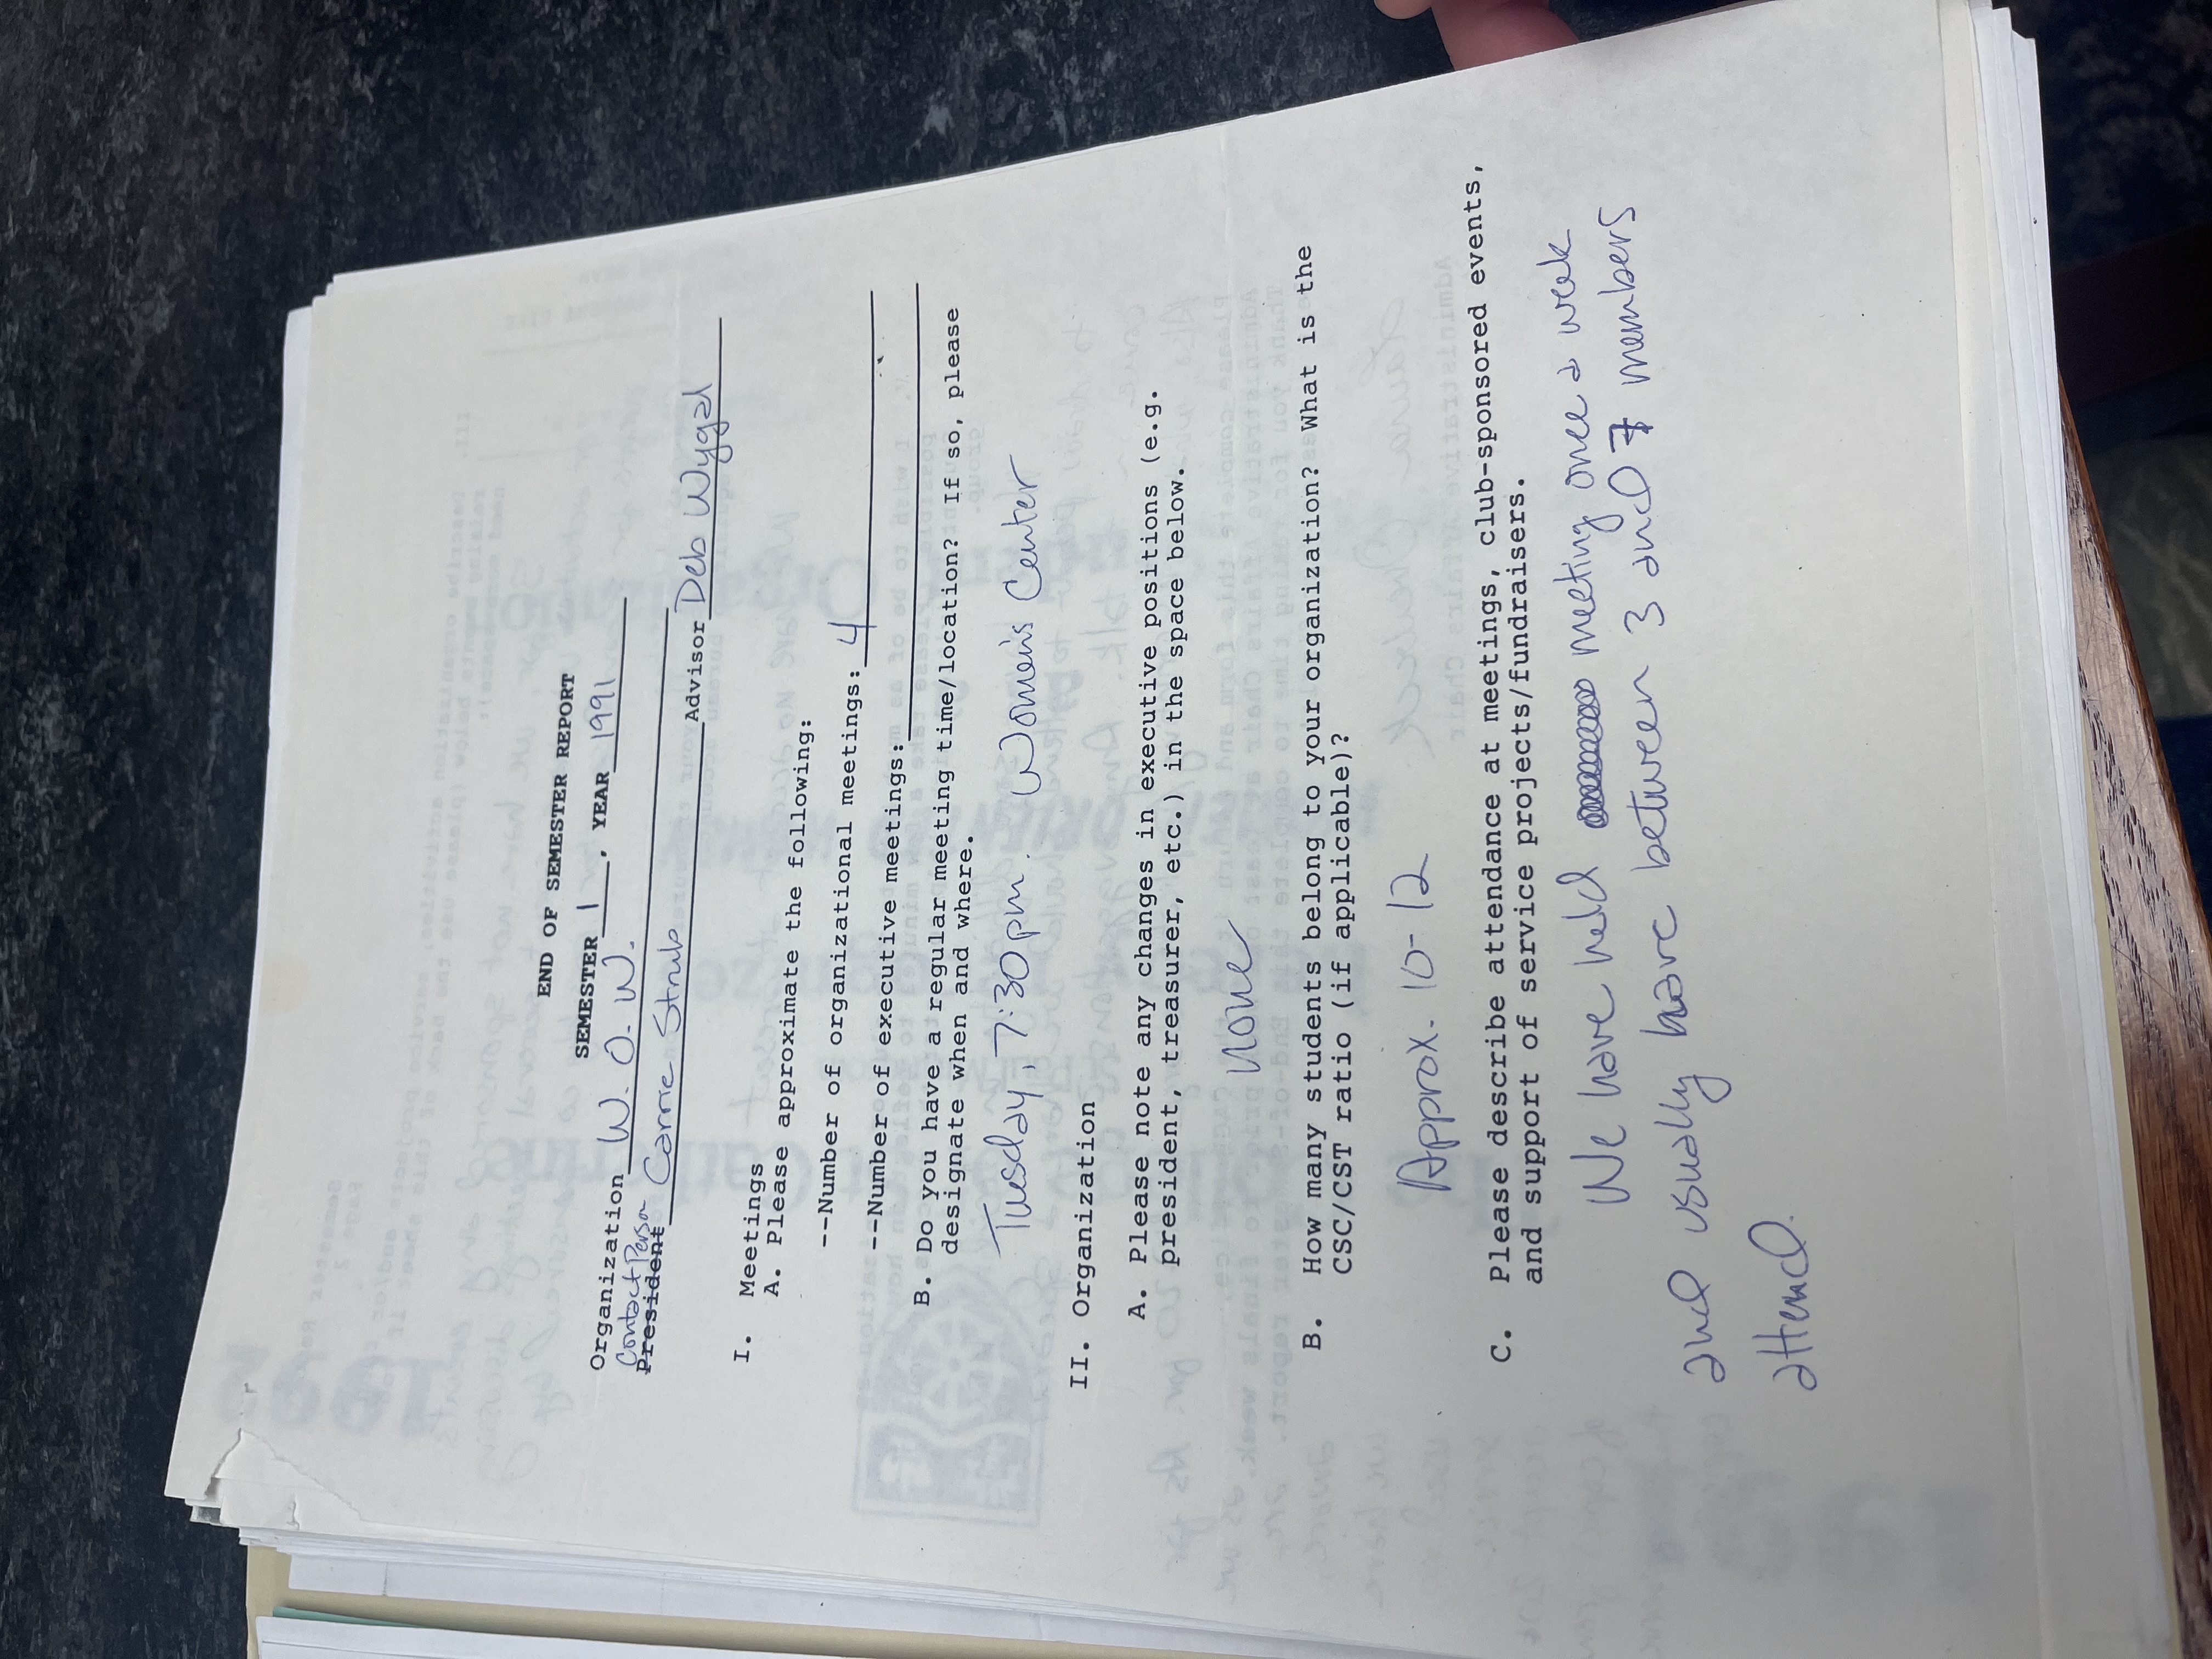 END OF SEMESTER REPORT
SEMESTER 1, YEAR 1991
Organization W. O. W.
Contact Person
President Carrie Strub Advisor Deb Wygal
I. Meetings
A. Please approximate the following:
--Number of organizational meetings: 4
--Number of executive meetings:
B. Do you have a regular meeting time/location? If so, please
designate when and where.
Tuesday, 7:30pm. Women's Center
II. Organization
A. Please note any changes in executive positions (e.g.
president, treasurer, etc.) in the space below.
none
B. How many students belong to your organization? What is the
CSC/CST ratio (if applicable)?
Approx. 10-12
C. Please describe attendance at meetings, club-sponsored events,
and support of service projects/fundraisers.
We have held meeting once a week
and usually have between 3 and 7 members
attend.